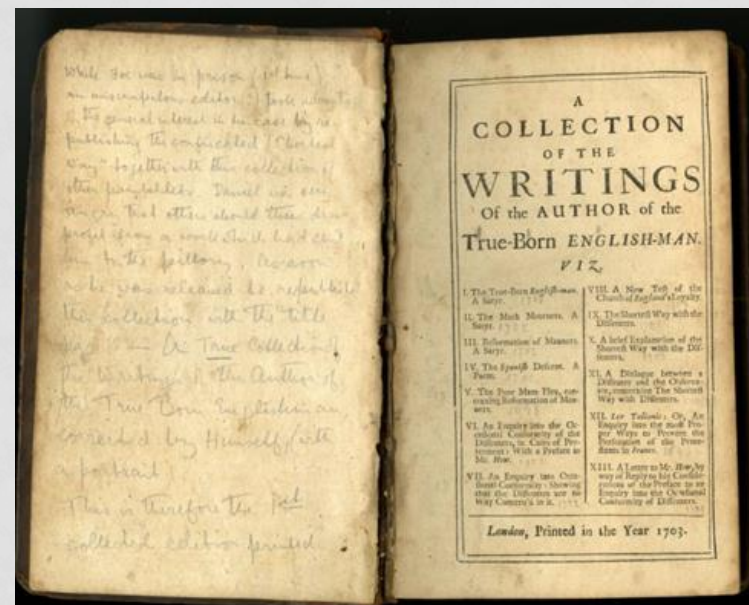 While Foe was in prison (1st time)
an unscrupulous editor took advantage
of the general interest in his case by re-
publishing the confiscated "Shortest
Way" together with this collection of
other pamphlets. Daniel was very
angry that others should thus draw
profit from a work which had cost
him to the pillory. As soon
as he was released he republished
this collection with the title
page a True Collection of
the writings of the Author of
the True Born Englishman
corrected by Himself, with
a portrait
This is therefore the 1st
collected edition printed
A
COLLECTION
OF THE
WRITINGS
Of the AUTHOR of the
True-Born ENGLISH-MAN.
VIZ,
I. The True-Born English-man.
A Satyr.
II. The Mock Mourners. A
Satyr.
III. Reformation of Manners.
A Satyr.
IV. The Spanish Descent. A
Poem.
V. The Poor Mans Plea, con-
cerning Reformation of Man-
ners.
VI. An Enquiry into the Oc-
casional Conformity of the
Dissenters, in Cases of Pre-
ferment: With a Preface to
Mr. How.
VII. An Enquiry into Occa-
sional Conformity: Shewing
that the Dissenters are no
Way Concern'd in it.
VIII. A New Test of the
Church of England's Loyalty.
IX. The Shortest Way with the
Dissenters.
X. A brief Explanation of the
Shortest Way with the Dis-
senters.
XI. A Dialogue between a
Dissenter and the Observa-
tor, concerning The Shortest
Way with Dissenters.
XII. Lex Talionis: Or, An
Enquiry into the most Pro-
per Ways to Prevent the
Persecution of the Prote-
stants in France.
XIII. A Letter to Mr. How, by
way of Reply to his Consider-
ations of the Preface to an
Enquiry into the Occasional
Conformity of Dissenters.
London, Printed in the Year 1703.